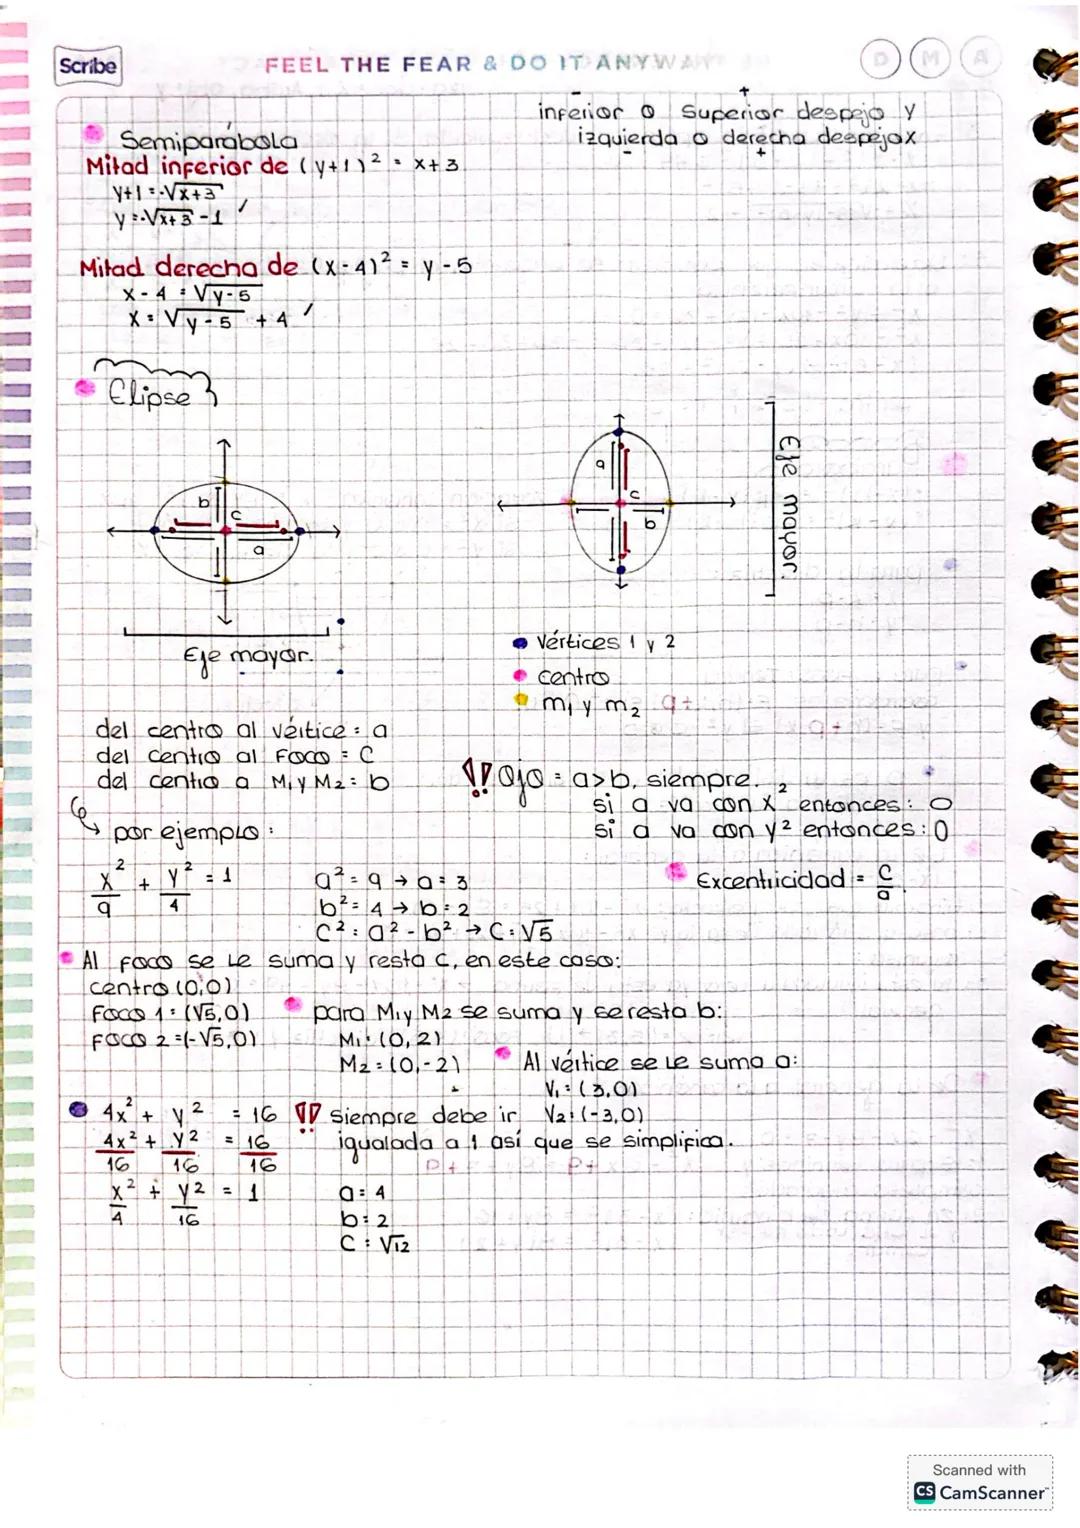 Scribe
FEEL THE FEAR & DO IT ANYWAY
D M A
- +
inferior o Superior despejo y
izquierda o derecha despejo x
- +
Semiparábola
Mitad inferior de (y+1)² = x+3
y+1 = -√x+3
y = -√x+3 -1
Mitad derecha de (x-4)² = y-5
x-4 = √y-5
x = √y-5 + 4
Elipse
b c a
Eje mayor.
a c b
Eje mayor.
Vértices 1 y 2
centro
m₁ y m₂
del centro al vértice = a
del centro al Foco = C
del centro a M₁ y M₂ = b
!! Ojo = a>b, siempre.
si a va con x² entonces: O
si a va con y² entonces: 0
por ejemplo:
x²/9 + y²/4 = 1
a² = 9 → a = 3
b² = 4 → b = 2
C² = a² - b² → C = √5
Excentricidad = c/a.
Al foco se le suma y resta c, en este caso:
centro (0,0)
Foco 1 = (√5,0)
Foco 2 = (-√5,0)
para M₁ y M₂ se suma y se resta b:
M₁ = (0, 2)
M₂ = (0,-2)
Al vértice se le suma a:
V₁ = (3,0)
V₂ = (-3,0)
4x² + y² = 16
!! siempre debe ir
igualada a 1 así que se simplifica.
4x²/16 + y²/16 = 16/16
x²/4 + y²/16 = 1
a = 4
b = 2
C = √12
Scanned with
CS CamScanner